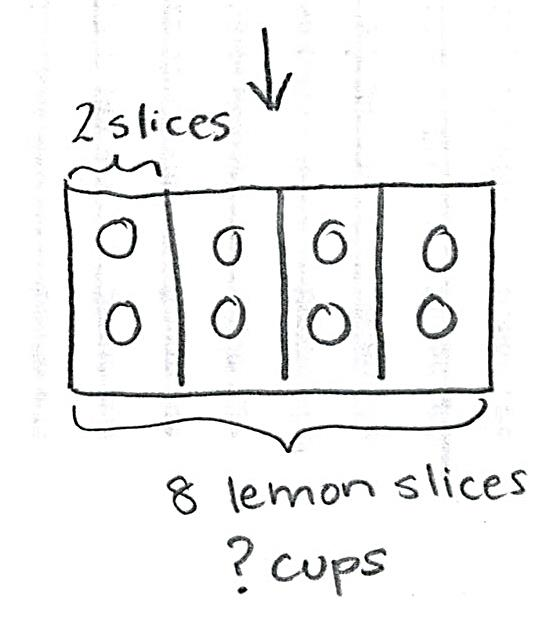 2 slices
8 lemon slices
? cups